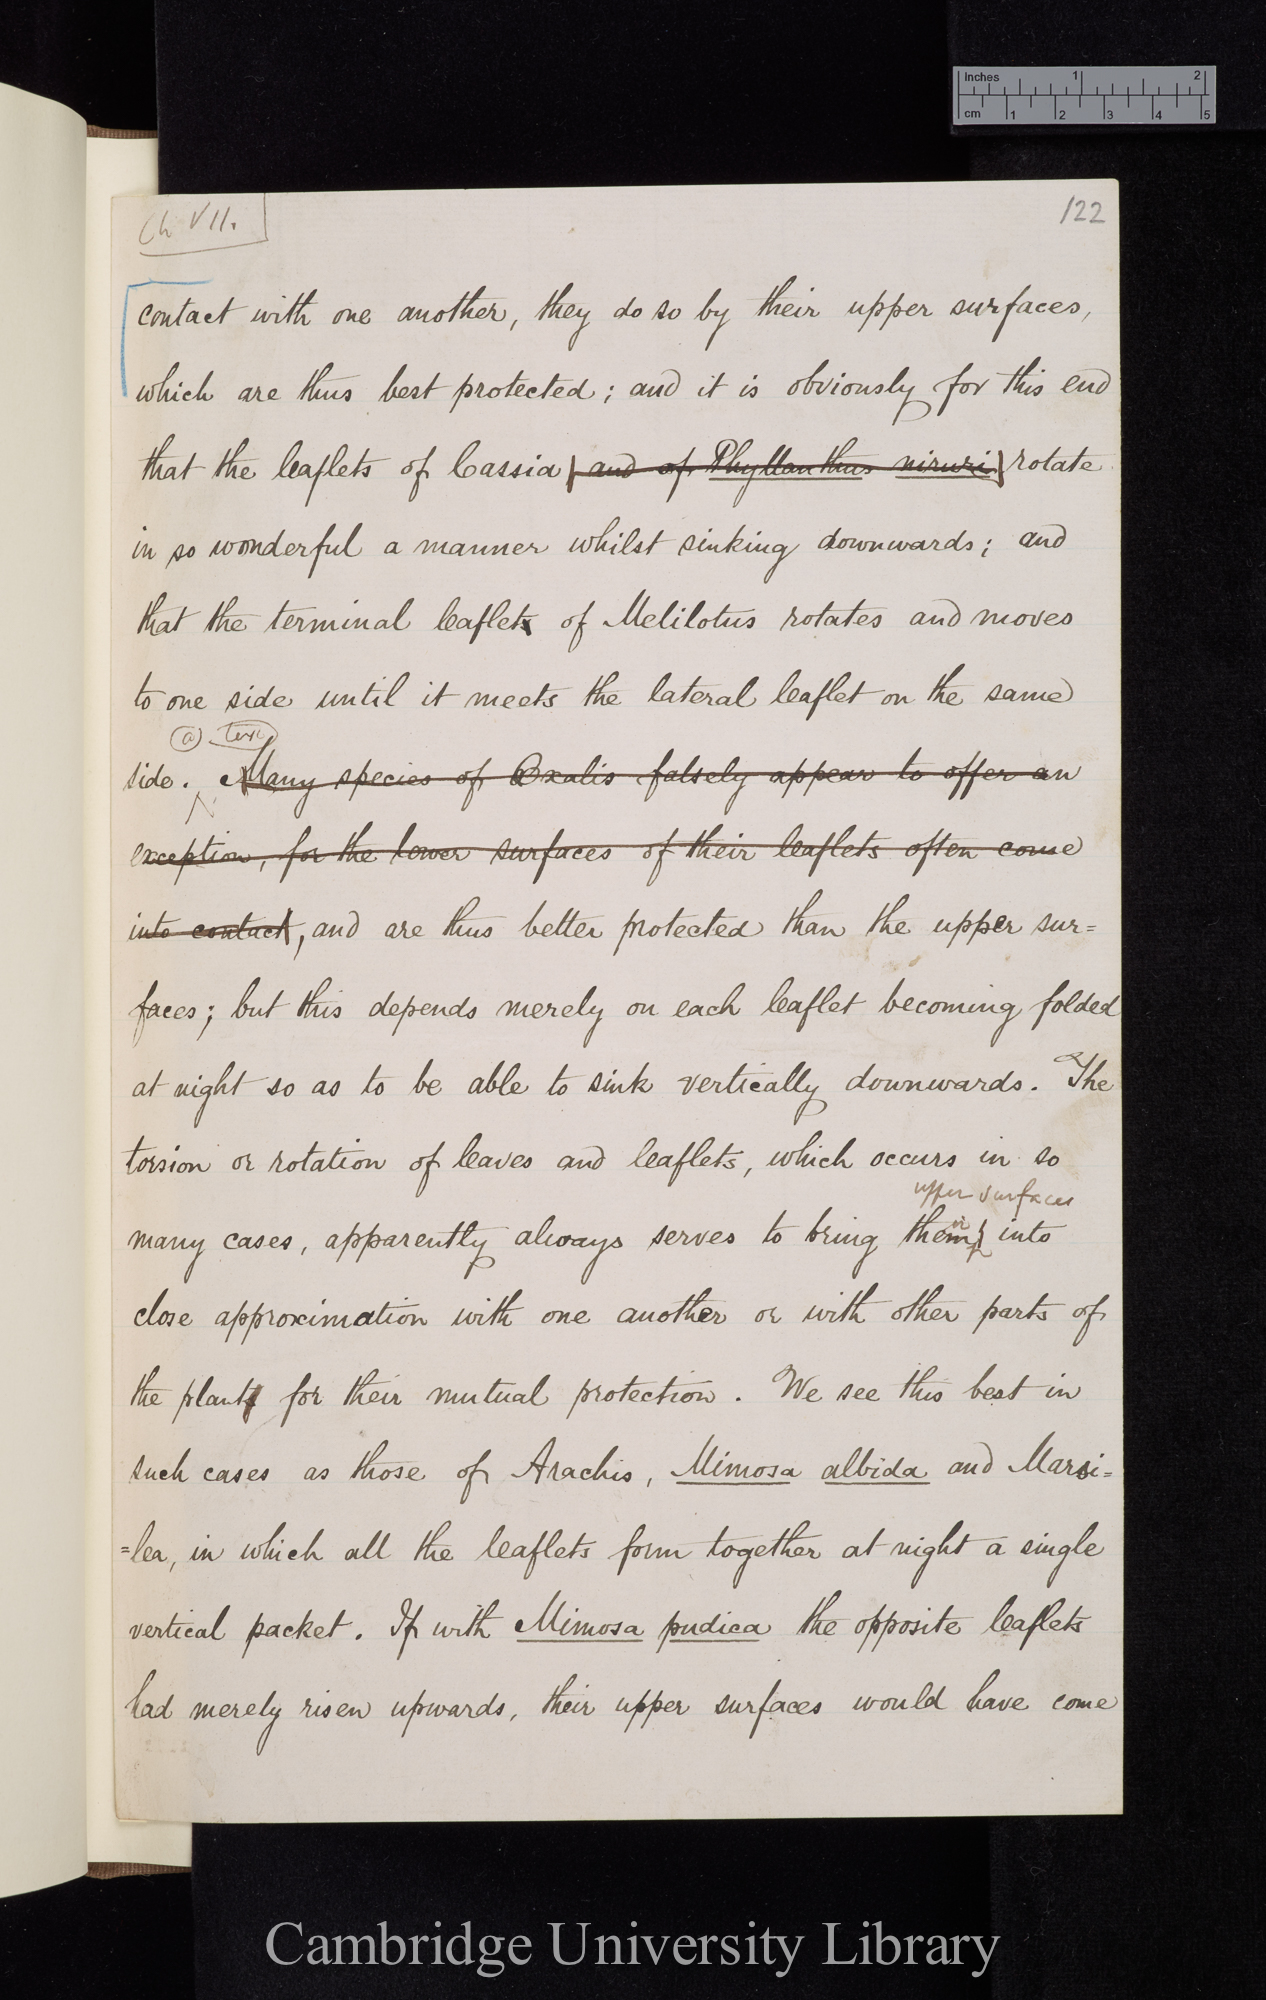 Inches 1 2
cm 1 2 3 4 5
Ch VII.
122
contact with one another, they do so by their upper surfaces,
which are thus best protected; and it is obviously for this end
that the leaflets of Cassia and of Phyllanthus niruri rotate
in so wonderful a manner whilst sinking downwards; and
that the terminal leaflets of Melilotus rotates and moves
to one side until it meets the lateral leaflet on the same
(a) text
side. Many species of Oxalis falsely appear to offer an
exception, for the lower surfaces of their leaflets often come
into contact, and are thus better protected than the upper sur=
faces; but this depends merely on each leaflet becoming folded
at night so as to be able to sink vertically downwards. The
torsion or rotation of leaves and leaflets, which occurs in so
upper surfaces
many cases, apparently always serves to bring them into
close approximation with one another or with other parts of
the plant for their mutual protection. We see this best in
such cases as those of Arachis, Mimosa albida and Marsi=
=lea, in which all the leaflets form together at night a single
vertical packet. If with Mimosa pudica the opposite leaflets
had merely risen upwards, their upper surfaces would have come
Cambridge University Library